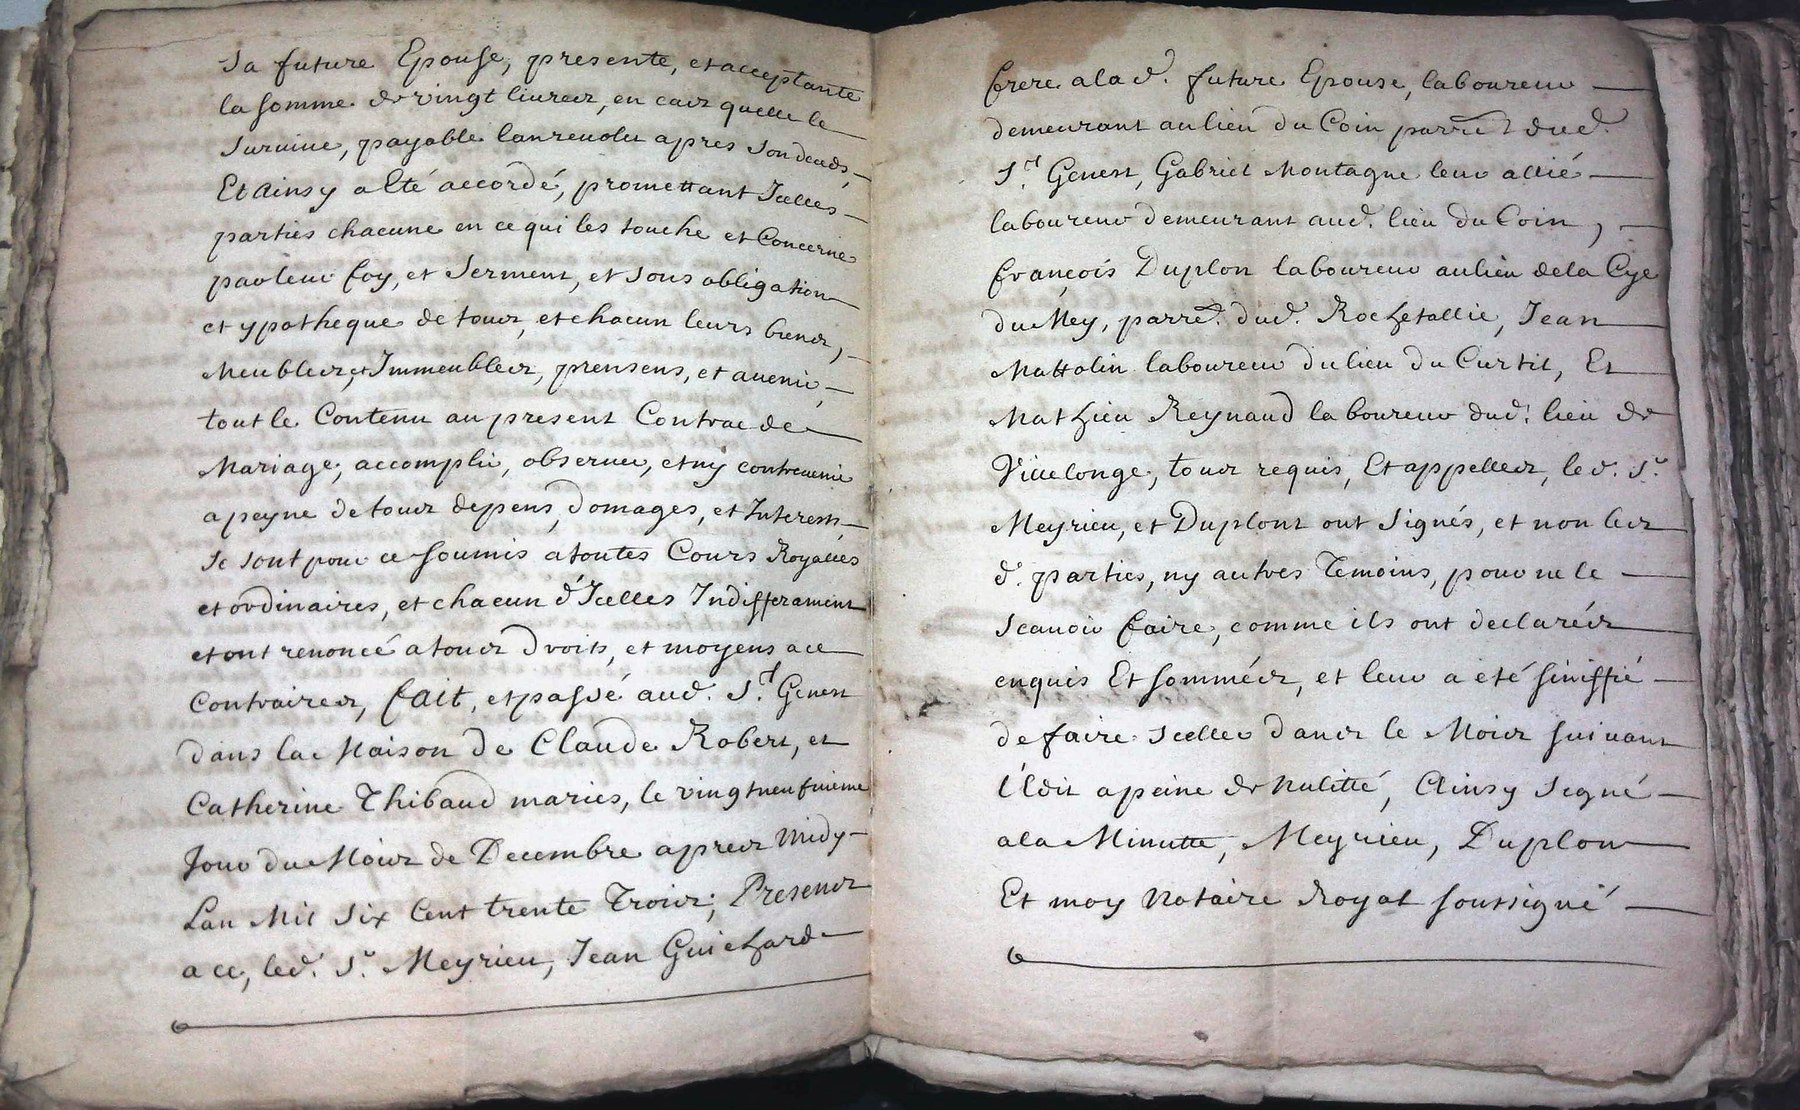 Sa future Epouse, presente, et acceptante
la somme de vingt livres, en cas quelle le
Survive, payable lan revolu apres son deceds,
Et Ainsy a Eté accordé, promettant Icelles
parties chacune en ce qui les touche et Concerne
par leur foy, et Serment, et sous obligation
et ypotheque de tous, et chacun leurs biens,
Meubles, et Immeubles, presens, et avenir,
tout le Contenu au present Contrac de
Mariage, accomplir, observer, et ny contrevenir
a peyne de tous depens, domages, et Interests
Se sont pour ce soumis a toutes Cours Royalles
et ordinaires, et chacun d'Icelles Indifferament
et ont renoncé a tous Droits, et moyens a ce
Contraires, fait, et passé aud. St. Genest
dans la Maison de Claude Robert, et
Catherine Thibaud mariés, le vingt neufvieme
Jour du Mois de Decembre apres Midy
Lan Mil Six Cent trente Trois; Presens
a ce, led. Sr. Meyrieu, Jean Guichard
frere a la d. future Epouse, laboureur
demeurant au lieu du Coin parre. dud.
St. Genest, Gabriel Montagne leur allié
laboureur demeurant aud. lieu du Coin,
françois Duplon laboureur au lieu de la Cye
du Mey, parre. dud. Rochetallie, Jean
Mattolin laboureur du lieu du Curtil, Et
Mathieu Reynaud laboureur dud. lieu de
Villelonge, tous requis, Et appelles, le d. Sr.
Meyrieu, et Duplont ont signés, et non les
d. parties, ny autres Temoins, pour ne le
Scavoir faire, comme ils ont declarés
enquis Et sommés, et leur a eté siniffié
de faire sceller dans le Mois suivant
l'Edit a peine de Nulitté, Ainsy signé
a la Minutte, Meyrieu, Duplon
Et moy Notaire Royal soussigné